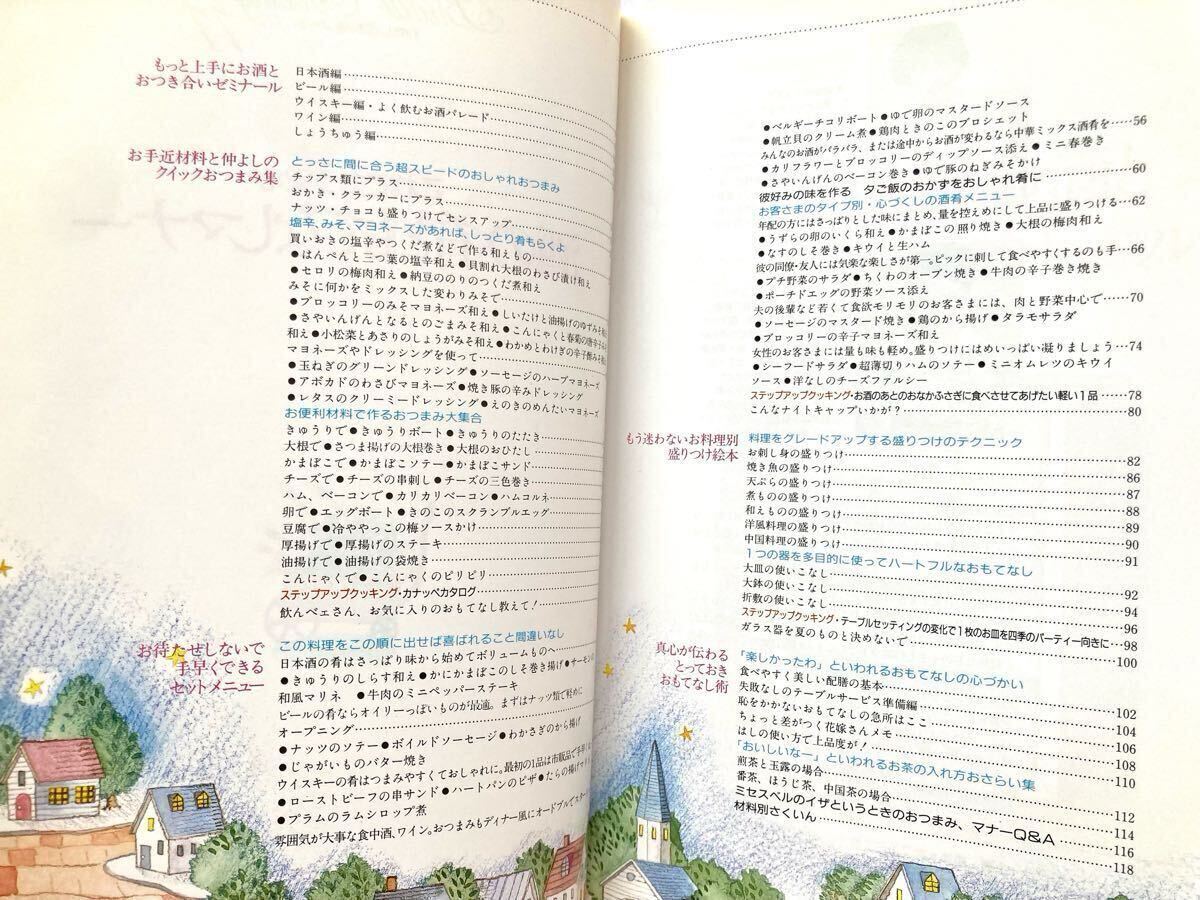 もっと上手にお酒と
おつき合いゼミナール
日本酒編
ビール編
ウイスキー編・よく飲むお酒パレード
ワイン編
しょうちゅう編
お手近材料と仲よしの
クイックおつまみ集
とっさに間に合う超スピードのおしゃれおつまみ
チップス類にプラス
おかき・クラッカーにプラス
ナッツ・チョコも盛りつけでセンスアップ
塩辛、みそ、マヨネーズがあれば、しっとり肴もらくよ
買いおきの塩辛やつくだ煮などで作る和えもの
●はんぺんと三つ葉の塩辛和え●貝割れ大根のわさび漬け和え
●セロリの梅肉和え●納豆ののりのつくだ煮和え
みそに何かをミックスした変わりみそで
●ブロッコリーのみそマヨネーズ和え●しいたけと油揚げのゆずみそ
●さやいんげんとなるとのごまみそ和え●こんにゃくと春菊の唐辛子
和え●小松菜とあさりのしょうがみそ和え●わかめとわけぎの辛子酢みそ
マヨネーズやドレッシングを使って
●玉ねぎのグリーンドレッシング●ソーセージのハーブマヨネーズ
●アボカドのわさびマヨネーズ●焼き豚の辛みドレッシング
●レタスのクリーミードレッシング●えのきのめんたいマヨネーズ
お便利材料で作るおつまみ大集合
きゅうりで●きゅうりボート●きゅうりのたたき
大根で●さつま揚げの大根巻き●大根のおひたし
かまぼこで●かまぼこソテー●かまぼこサンド
チーズで●チーズの串刺し●チーズの三色巻き
ハム、ベーコンで●カリカリベーコン●ハムコルネ
卵で●エッグボート●きのこのスクランブルエッグ
豆腐で●冷ややっこの梅ソースかけ
厚揚げで●厚揚げのステーキ
油揚げで●油揚げの袋焼き
こんにゃくで●こんにゃくのピリピリ
ステップアップクッキング・カナッペカタログ
飲んべエさん、お気に入りのおもてなし教えて!
お待たせしないで
手早くできる
セットメニュー
この料理をこの順に出せば喜ばれること間違いなし
日本酒の肴はさっぱり味から始めてボリュームものへ
●きゅうりのしらす和え●かにかまぼこのしそ巻き揚げ●サーモンの
和風マリネ ●牛肉のミニペッパーステーキ
ビールの肴ならオイリーっぽいものが最適。まずはナッツ類で軽めに
オープニング
●ナッツのソテー●ボイルドソーセージ●わかさぎのから揚げ
●じゃがいものバター焼き
ウイスキーの肴はつまみやすくておしゃれに。最初の1品は市販品で手早く
●ローストビーフの串サンド●ハートパンのピザ●たらの揚げ
●プラムのラムシロップ煮
雰囲気が大事な食中酒、ワイン。おつまみもディナー風にオードブルでスター
●ベルギーチコリボート●ゆで卵のマスタードソース
●帆立貝のクリーム煮●鶏肉ときのこのブロシェット
みんなのお酒がバラバラ、または途中からお酒が変わるなら中華ミックス酒肴を……56
●カリフラワーとブロッコリーのディップソース添え●ミニ春巻き
●さやいんげんのベーコン巻き●ゆで豚のねぎみそかけ
彼好みの味を作る 夕ご飯のおかずをおしゃれ肴に……60
お客さまのタイプ別・心づくしの酒肴メニュー
年配の方にはさっぱりとした味にまとめ、量を控えめにして上品に盛りつける……62
●うずらの卵のいくら和え●かまぼこの照り焼き●大根の梅肉和え
●なすのしそ巻き●キウイと生ハム
彼の同僚・友人には気楽な楽しさが第一。ピックに刺して食べやすくするのも手……66
●プチ野菜のサラダ●ちくわのオーブン焼き●牛肉の辛子巻き焼き
●ポーチドエッグの野菜ソース添え
夫の後輩など若くて食欲モリモリのお客さまには、肉と野菜中心で……70
●ソーセージのマスタード焼き●鶏のから揚げ●タラモサラダ
●ブロッコリーの辛子マヨネーズ和え
女性のお客さまには量も味も軽め。盛りつけにはめいっぱい凝りましょう……74
●シーフードサラダ●超薄切りハムのソテー●ミニオムレツのキウイ
ソース●洋なしのチーズファルシー
ステップアップクッキング・お酒のあとのおなかふさぎに食べさせてあげたい軽い1品……78
こんなナイトキャップいかが?……80
もう迷わないお料理別
盛りつけ絵本
料理をグレードアップする盛りつけのテクニック
お刺し身の盛りつけ……82
焼き魚の盛りつけ……86
天ぷらの盛りつけ……87
煮ものの盛りつけ……88
和えものの盛りつけ……89
洋風料理の盛りつけ……90
中国料理の盛りつけ……91
1つの器を多目的に使ってハートフルなおもてなし
大皿の使いこなし……92
大鉢の使いこなし……94
折敷の使いこなし……96
ステップアップクッキング・テーブルセッティングの変化で1枚のお皿を四季のパーティー向きに……98
ガラス器を夏のものと決めないで……100
真心が伝わる
とっておき
おもてなし術
「楽しかったわ」といわれるおもてなしの心づかい
食べやすく美しい配膳の基本……102
失敗なしのテーブルサービス準備編……104
恥をかかないおもてなしの急所はここ……106
ちょっと差がつく花嫁さんメモ……108
はしの使い方で上品度が!……110
「おいしいなー」といわれるお茶の入れ方おさらい集
煎茶と玉露の場合……112
番茶、ほうじ茶、中国茶の場合……114
ミセスベルのイザというときのおつまみ、マナーQ&A……116
材料別さくいん……118